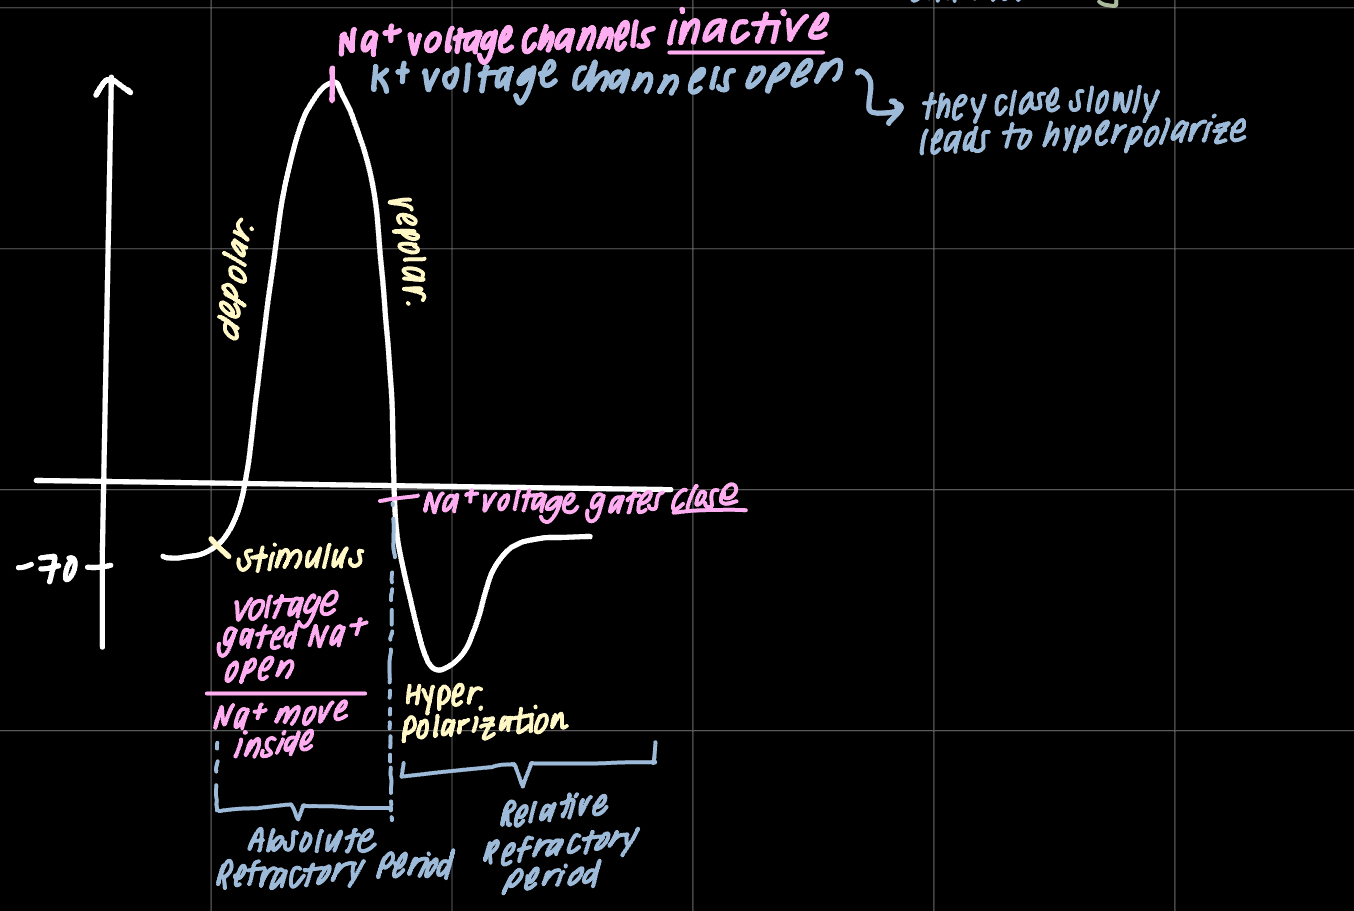 Na+ voltage channels inactive
K+ voltage channels open
they close slowly
leads to hyperpolarize
depolar.
repolar.
Na+ voltage gates close
-70
stimulus
voltage
gated Na+
open
Na+ move
inside
Hyper.
polarization
Absolute
Refractory Period
Relative
Refractory
period